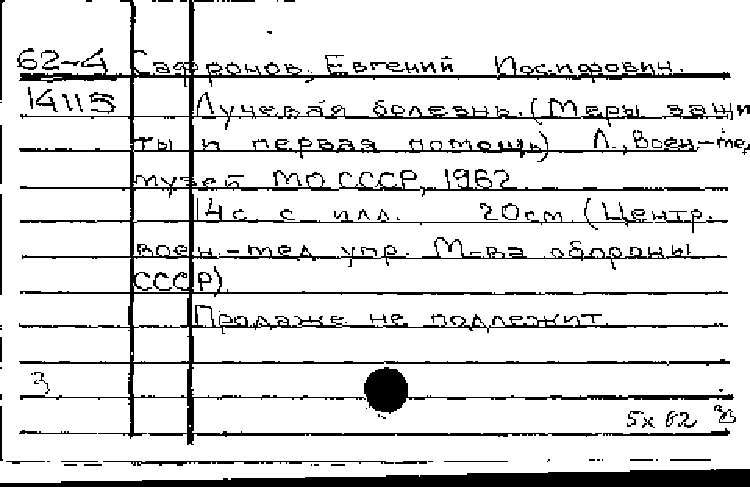 62-4 Сафронов, Евгений Иосифович.
14115 Лучевая болезнь. (Меры защи
ты и первая помощь) Л., Воен-мед
музей МО СССР, 1962.
14 с с илл. 20 см (Центр.
воен.-мед упр. М-ва обороны
СССР)
Продаже не подлежит
3
5х 62